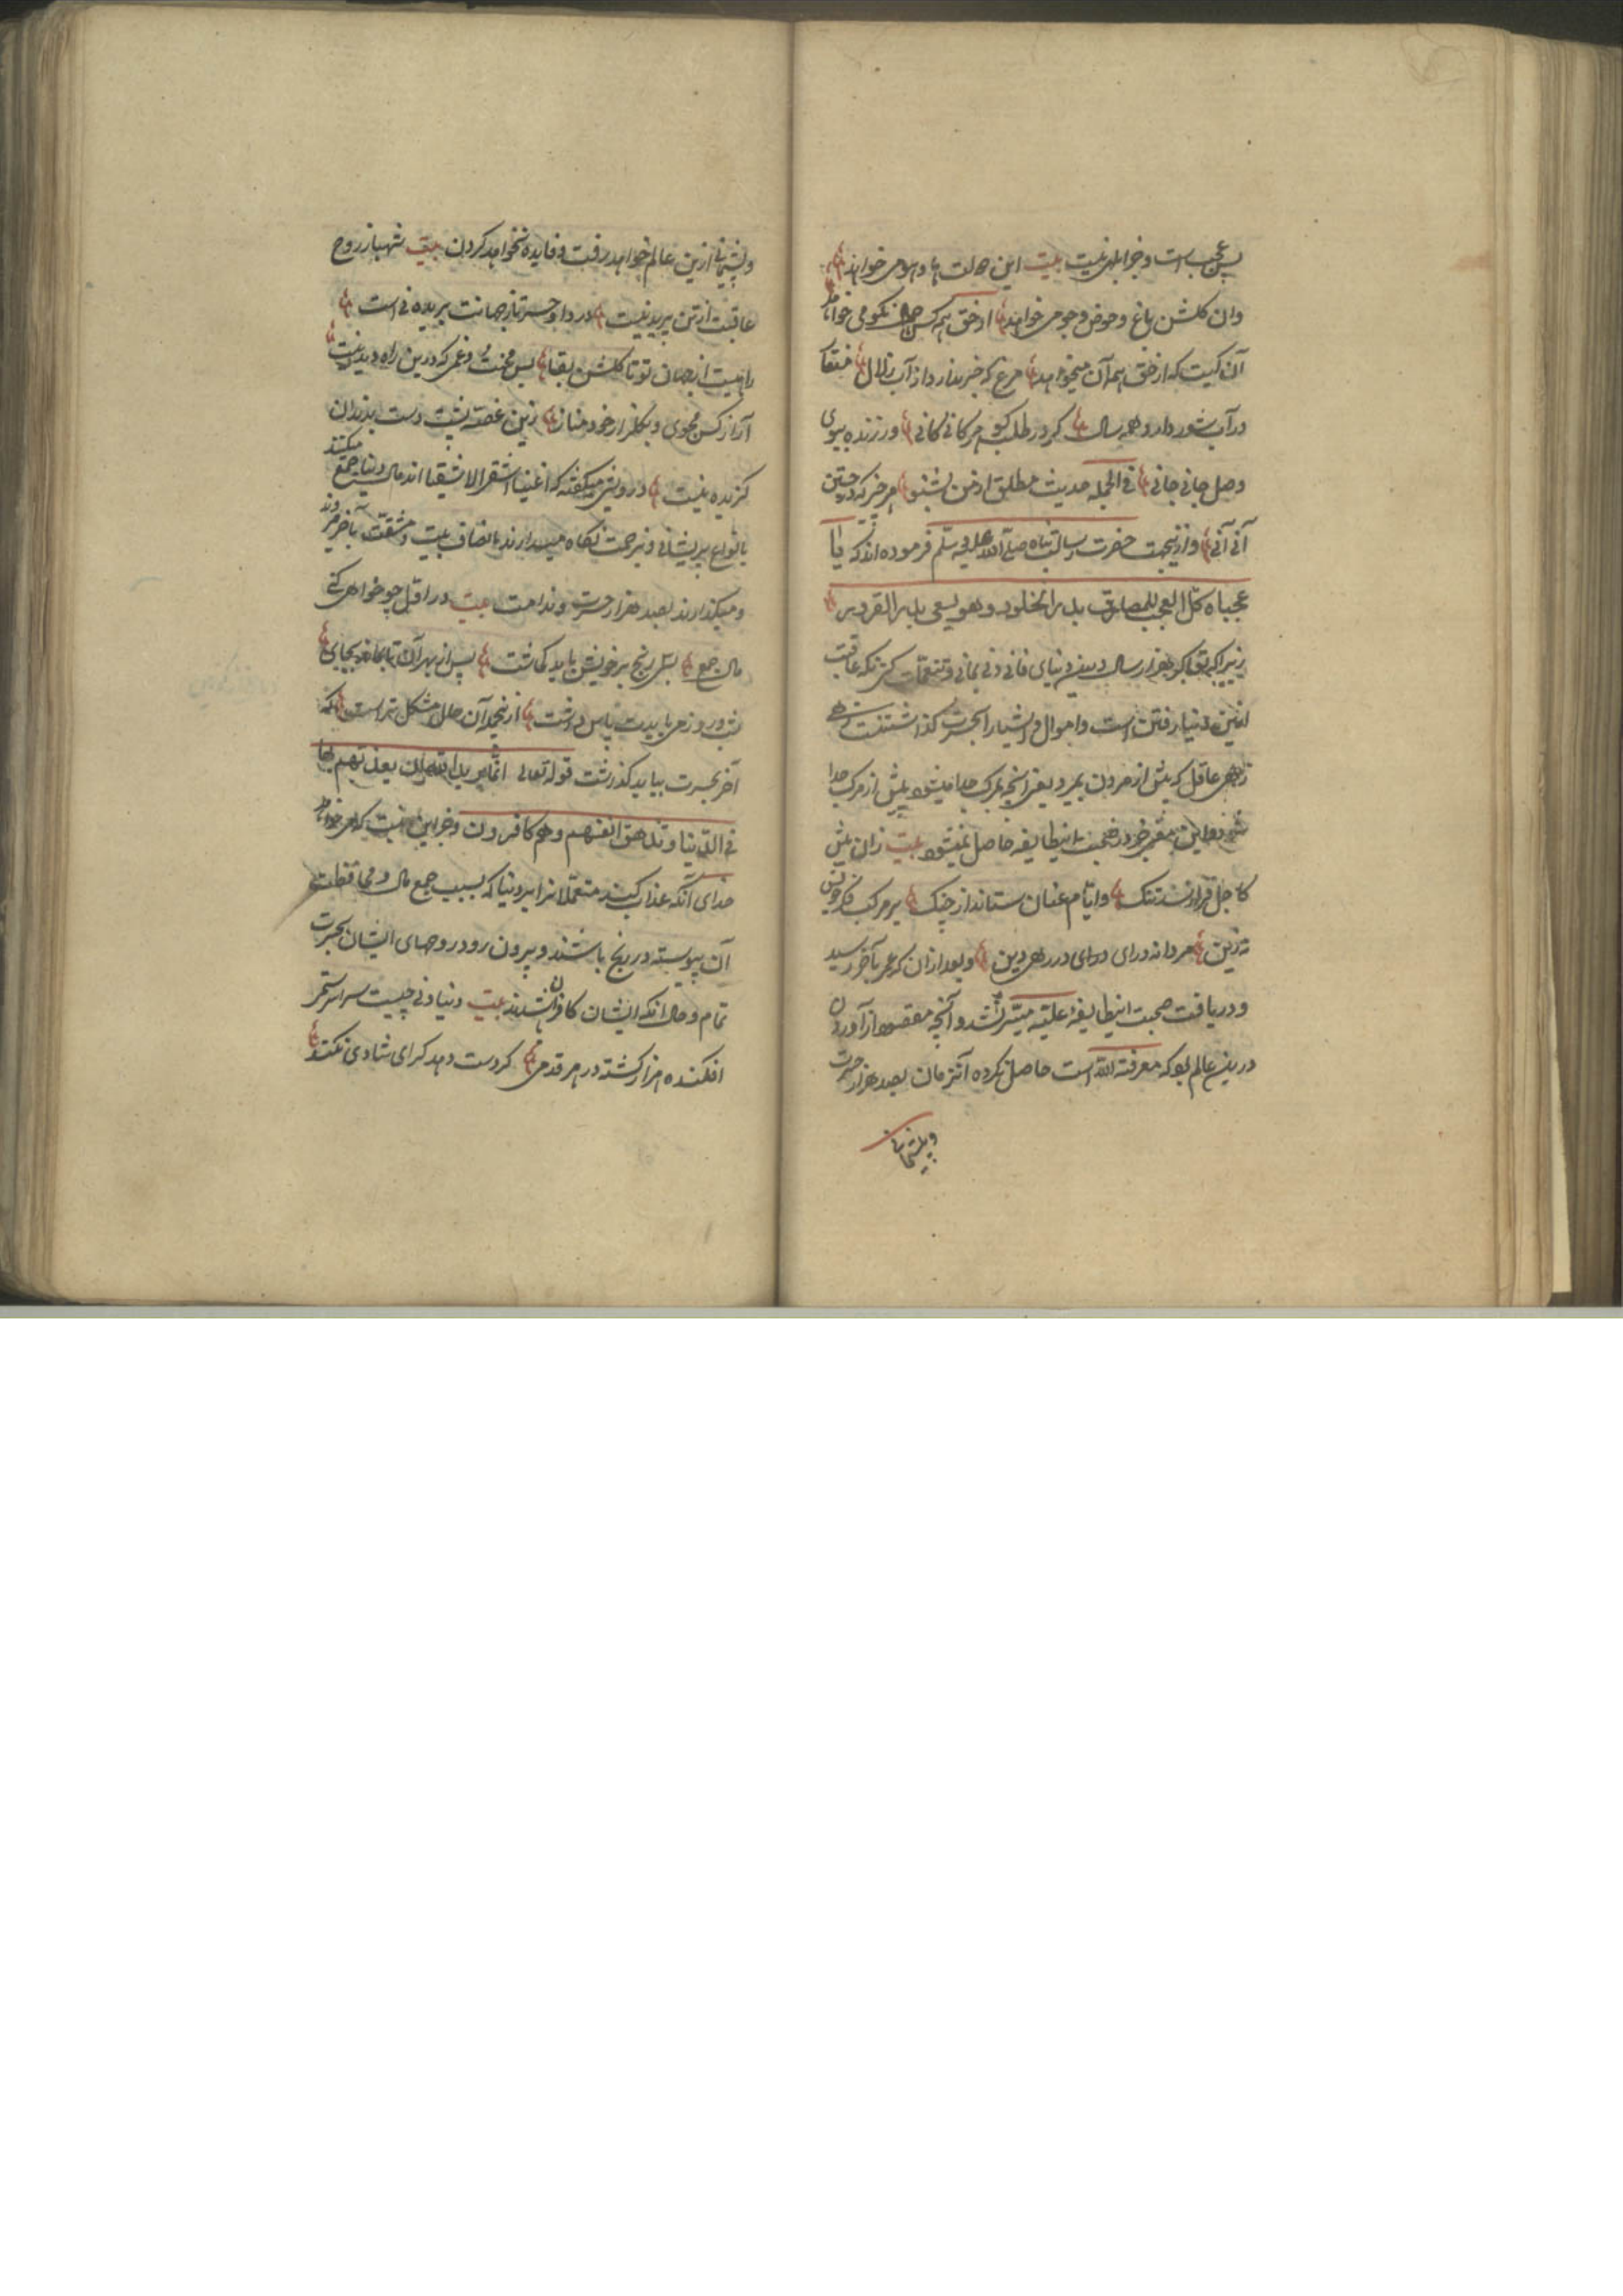 پس عجب است و جز ابلهی نیست بیت این حالت ها و هوی می خواهد
وان گلشن باغ و حوض و جو می خواهد از حق همه کس نکو می خواهد
آن کیست که از حق همه آن میخواهد مرغی که خبر ندارد از آب زلال منقار
در آب شور دارد همه سال گر در طلب گوهر کانی کانی ور زنده ببوی
وصل جانی جانی فی الجمله حدیث مطلق از من بشنو هر چیز که در جستن
آنی آنی و ازینجهت حضرت رسالت پناه صلی الله علیه وسلم فرموده اند که یا
عجباه کل العجب للمصدق بدار الخلود وهو یسعی بدار الغرور
زیرا که هزار سال درین دنیای فانی دنی بمانی و تنعمات کنی که عاقبت
ازین دنیا رفتن است و اموال و اشیا را بحسرت گذاشتنست
زهی عاقل که پیش از مردن بمیرد یعنی آنچه بمرگ جدا میشود پیش از مرگ جدا
شود و این بجز در صحبت اینطایفه حاصل نمیشود بیت زان پیش
کاجل فرا رسد تنگ وایام عنان ستاند از چنگ بر مرکب فکر خویش
نه زین مردانه درای در رهی دین و بعد از آن که عمر بآخر رسید
و دریافت صحبت اینطایفه علیه میسر نشد و آنچه مقصود از آوردن
درین عالم بود که معرفة الله است حاصل نکرده آنزمان بصد هزار حسرت
و پشیمانی
و پشیمانی ازین عالم خواهد رفت و فایده نخواهد کردن بیت شهباز روح
عاقبت از تن پریدنیست دردا و حسرتا ز جهانت بریدنی است
راهیست از جهان تو تا گلشن بقا بس محنت و غمی که درین راه دیدنیست
آزار کس مجوی و بگلزار خود مناز زین غصه پشت دست بدندان
گزیدنیست درویشی میگفته که اغنیا اشقر الاشقیا اند مال دنیا جمع میکنند
بانواع پریشانی و نیز جمت نگاه میدارند بانصاف بلیت و مشقت بآخر میروند
و میگذارند بصد هزار حسرت و ندامت بیت در اول چو خواهی کنی
مال جمع بسی رنج بر خویش باید گماشت پس از بهر آن تا بماند بجای
شب و روز می بایدت پاس داشت ازینجمله آن حال مشکل تر است که
آخر بحسرت بباید گذاشت قوله تعالی انما یرید الله ان یعذبهم بها
فی الدنیا وتزهق انفسهم وهم کافرون و جز این نیست که میخواهد
خدای آنکه عذاب کند متمولانرا در دنیا که بسبب جمع مال و محافظت
آن پیوسته در رنج باشند و بیرون رود روحهای ایشان بحسرت
تمام و حال آنکه ایشان کافران باشند بیت دنیا دنی چیست سراسر ستمی
افکنده هزار کشته در هر قدمی گر دست دهد کرای شادی نکند